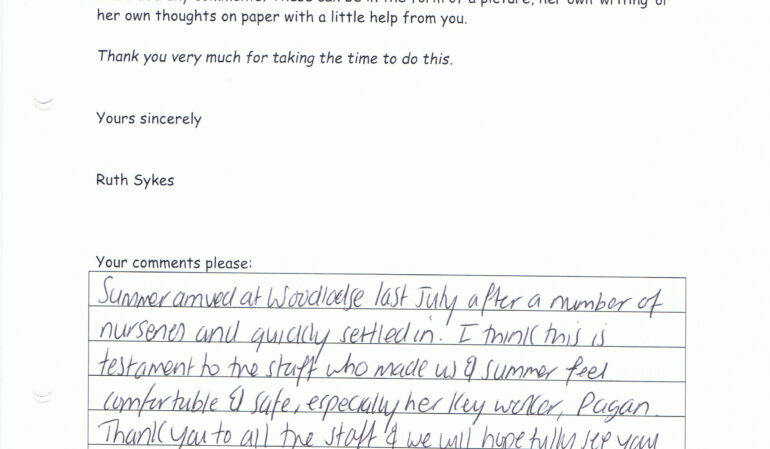 her own thoughts on paper with a little help from you.
Thank you very much for taking the time to do this.
Yours sincerely
Ruth Sykes
Your comments please:
Summer arrived at Woodloese last July after a number of
nurseries and quickly settled in. I think this is
testament to the staff who made us & summer feel
comfortable & safe, especially her key worker, Pagan.
Thank you to all the staff & we will hopefully see you